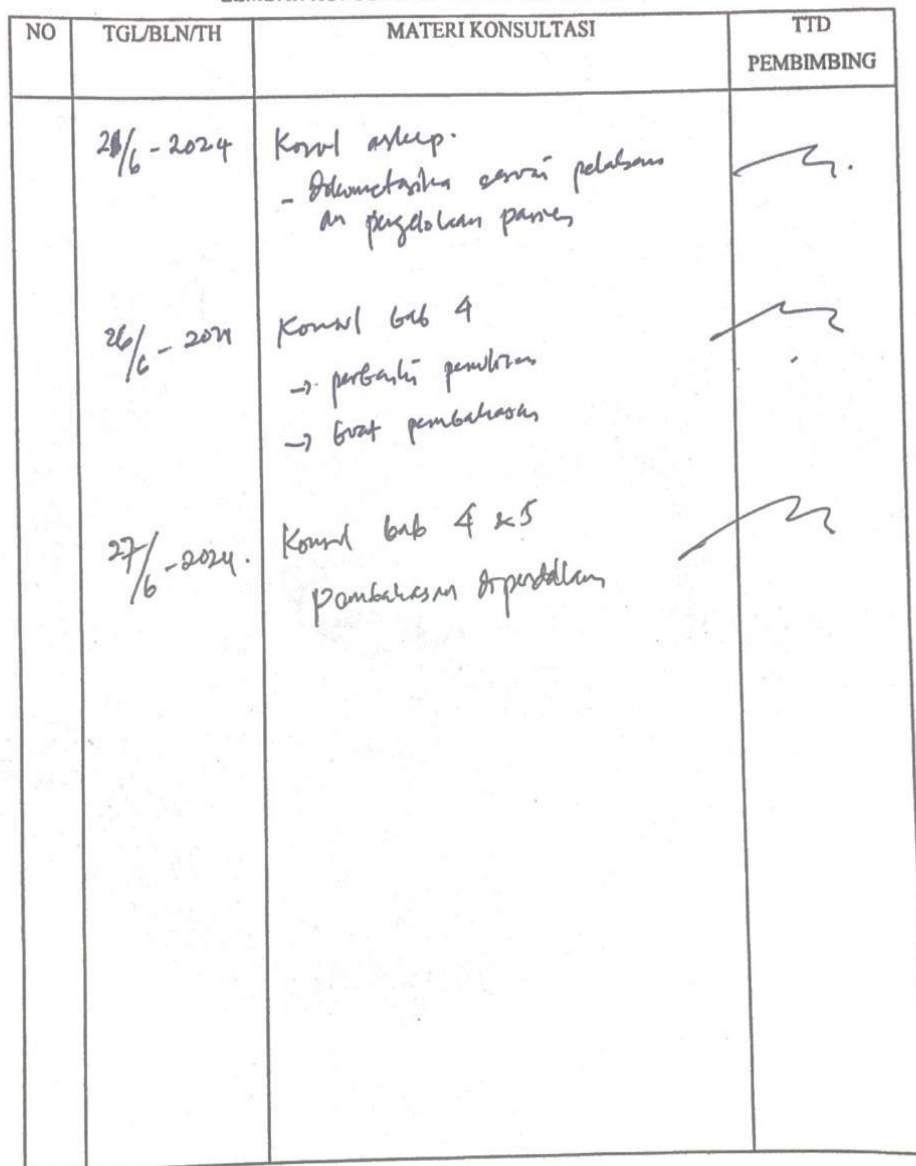 NO TGL/BLN/TH MATERI KONSULTASI TTD
PEMBIMBING
/6 - 2024 Konsul askep.
- Dokumentasika sesuai pelaksana
an pengelolaan pasien
26/6 - 2024 Konsul bab 4
→ perbaiki penulisan
→ buat pembahasan
27/6 - 2024. Konsul bab 4 & 5
pembahasan diperdalam